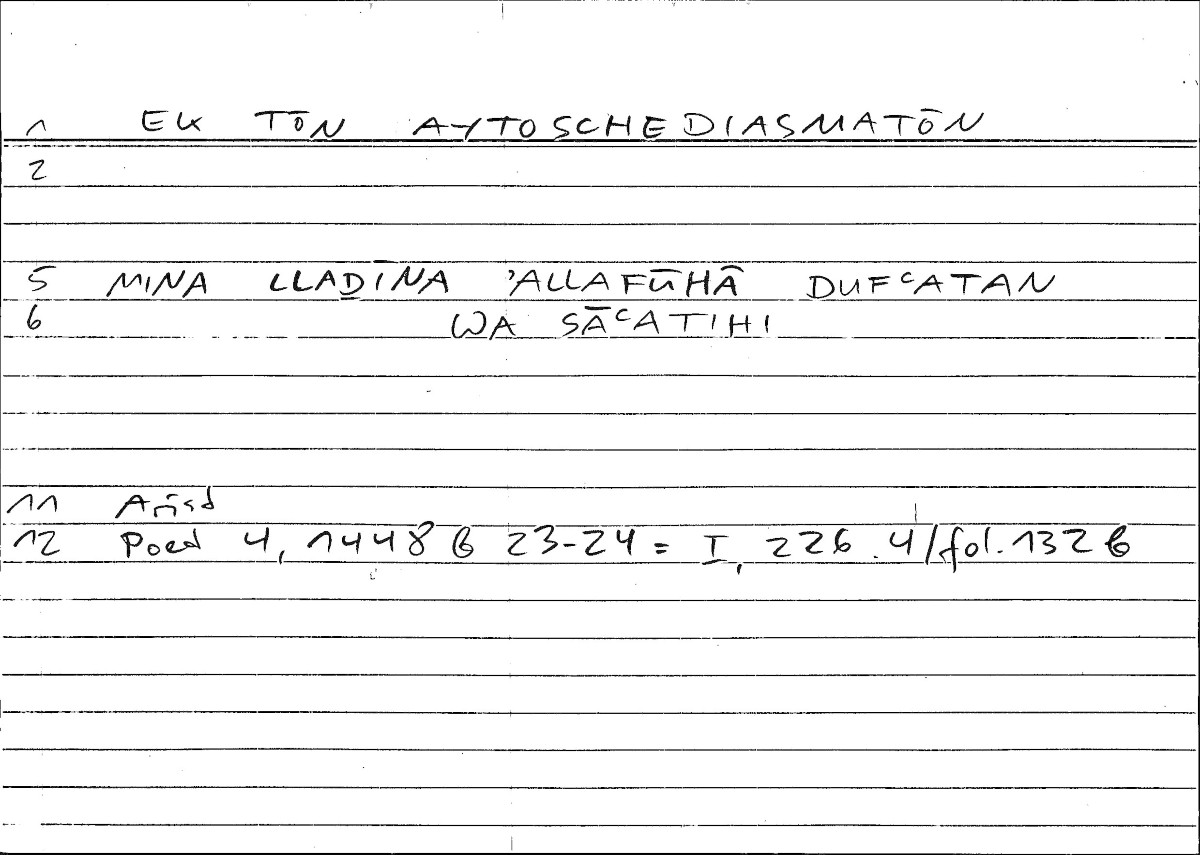 1 EK TŌN AYTOSCHEDIASMATŌN
2
5 MINA LLAḎĪNA ʾALLAFŪHĀ DUFʿATAN
6 WA SĀʿATIHI
11
12 Poed 4, 1448 b 23-24 = I, 226.4/fol. 132 b